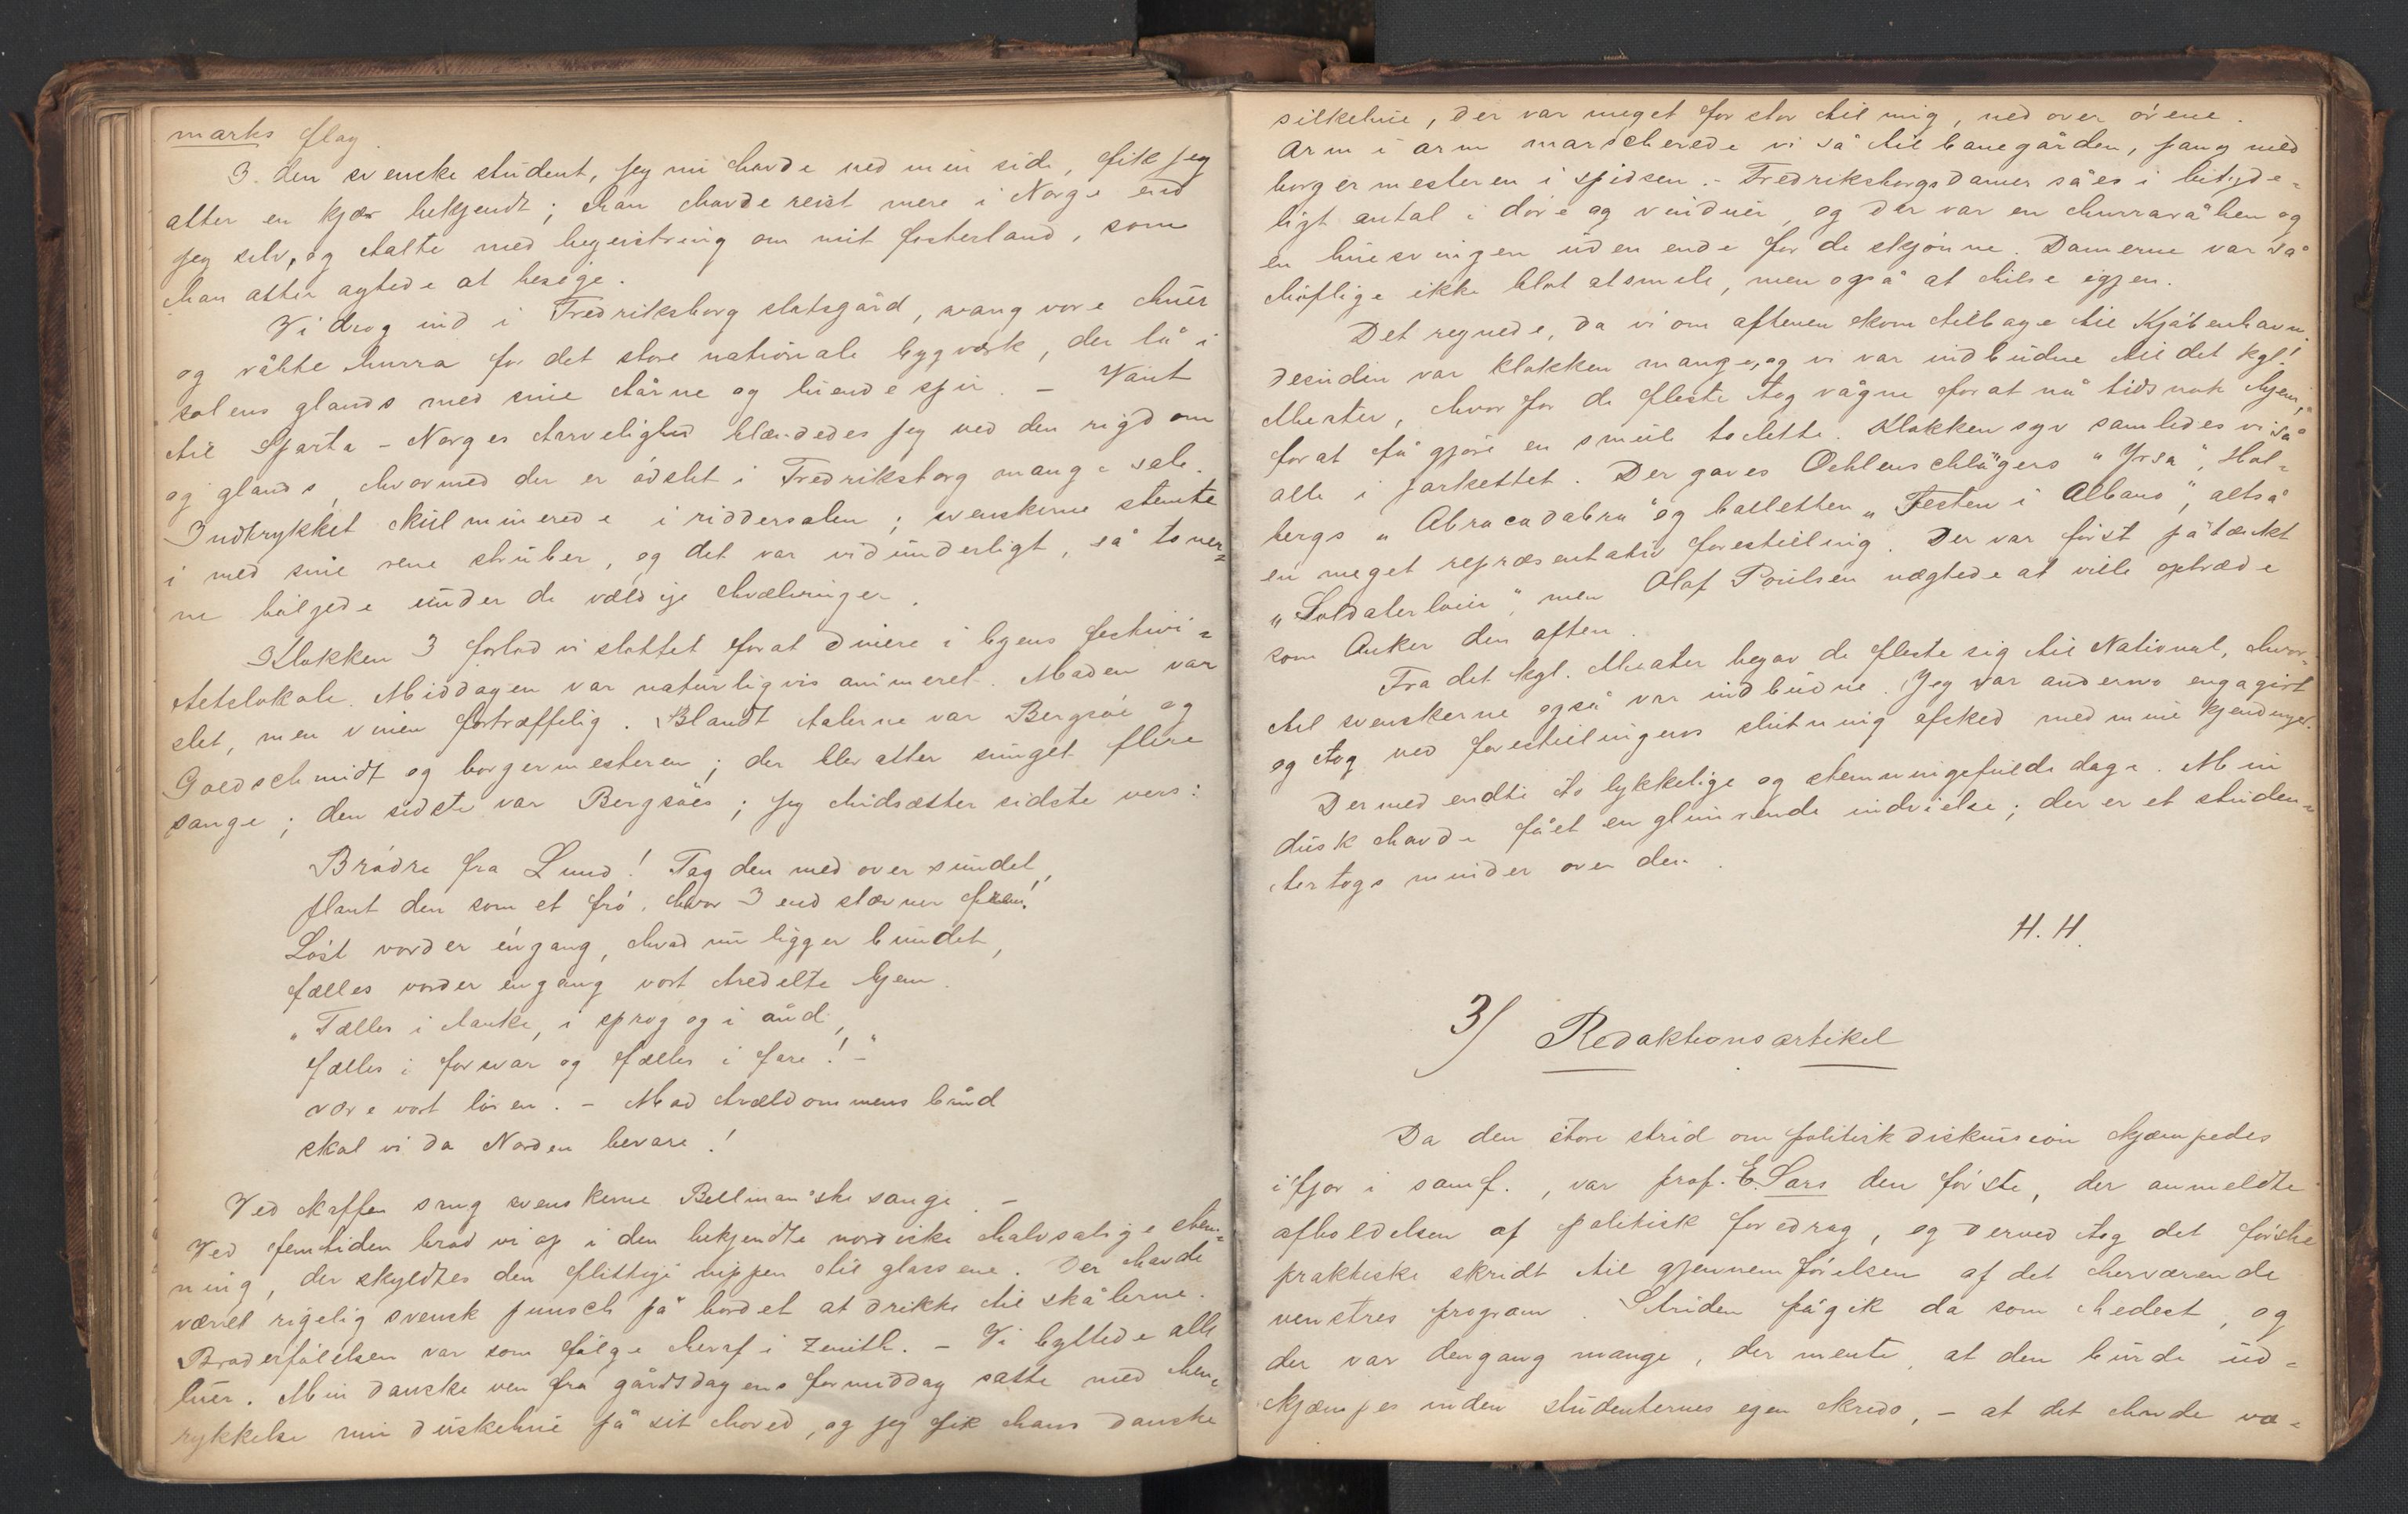 marks flag.
I den svenske student, jeg nu havde ved min side, fik jeg
atter en kjær bekjendt; han havde reist mere i Norge end
jeg selv, og talte med begeistring om mit fosterland, som
han atter agtede at besøge.
Vi drog ind i Fredriksborg slotsgård, svang vore huer
og råbte hurra for det store nationale bygværk, der lå i
solens glands med sine tårne og luende spir. – Vant
til Sparta-Norges tarvelighed blændedes jeg ved den rigdom
og glands, hvormed der er ødslet i Fredriksborg mange sale.
Indtrykket kulminerede i riddersalen; svenskerne stemte
i med sine rene struber, og det var vidunderligt, så toner=
ne bølgede under de vældige hvælvinger.
Klokken 3 forlod vi slottet forat dinere i byens festivi=
tetslokale. Middagen var naturligvis animeret. Maden var
slet, men vinen fortræffelig. Blandt talerne var Bergsøe og
Goldschmidt og borgermesteren; der blev atter sunget flere
sange; den sidste var Bergsøes; jeg hidsætter sidste vers:
Brødre fra Lund! Tag den med over sundet,
plant den som et frø, hvor I end stævner frem!
Løst vorder éngang, hvad nu ligger bundet,
fælles vorder engang vort tredelte hjem.
„Fælles i tanke, i sprog og i ånd,
fælles i forsvar og fælles i fare! –"
være vort løsen. – Mod trældommens bånd
skal vi da Norden bevare!
Ved kaffen sang svenskerne Bellman'ske sange. –
Ved femtiden brød vi op i den bekjendte nordiske halvsalige stem=
ning, der skyldtes den flittige nippen til glassene. Der havde
været rigelig svensk punsch på bordet at drikke til skålerne.
Broderfølelsen var som følge heraf i Zenith. – Vi byttede alle
huer. Min danske ven fra gårsdagens formiddag satte med hen=
rykkelse min duskehue på sit hoved, og jeg fik hans danske
silkehue, der var meget for stor til mig, ned over ørene.
Arm i arm marscherede vi så til banegården, sang med
borgermesteren i spidsen. – Fredriksborgs damer såes i betyde=
ligt antal i døre og vinduer, og der var en hurraråben og
en huesvingen uden ende for de skjønne. Damerne var så
høflige ikke blot at smile, men også at hilse igjen.
Det regnede, da vi om aftenen kom tilbage til Kjøbenhavn,
desuden var klokken mange, og vi var indbudne til det kgl.
theater, hvorfor de fleste tog vogne forat nå tidsnok hjem,
forat få gjøre en smule toilette. Klokken syv samledes vi så
alle i parkettet. Der gaves Oehlenschlägers „Yrsa", Hol=
bergs „Abracadabra" og balletten „Festen i Albano", altså
en meget repræsentativ forestilling. Der var først påtænkt
„Soldaterløier", men Olaf Poulsen nægtede at ville optræde
som Anker den aften.
Fra det kgl. theater begav de fleste sig til National, hvor=
til svenskerne også var indbudne. Jeg var andenvo engagirt
og tog ved forestillingens slutning afsked med mine kjendinger.
Dermed endte to lykkelige og stemningsfulde dage. Min
dusk havde fået en glimrende indvielse; der er et studen=
tertogs minder over den.
H. H.
3/ Redaktionsartikel
Da den store strid om politisk diskussion kjæmpedes
ifjor i samf., var prof. E. Sars den første, der anmeldte
afholdelsen af politisk foredrag, og derved tog det første
praktiske skridt til gjennemførelsen af det herværende
venstres program. Striden pågik da som hedest, og
der var dengang mange, der mente, at den burde ud=
kjæmpes inden studenternes egen kreds, – at det havde væ=